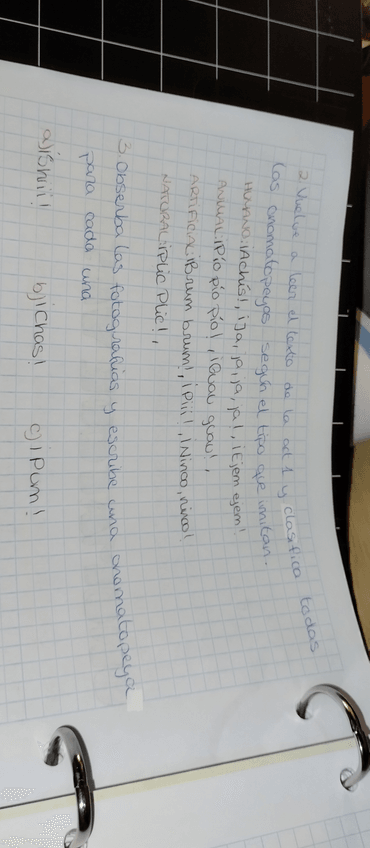 2. Vuelve a leer el texto de la act 1 y clasifica todas
las onomatopeyas según el tipo que imitan.
HUMANO: ¡Achís!, ¡Ja, ja, ja, ja!, ¡Ejem ejem!
ANIMAL: ¡Pío pío pío!, ¡Guau guau!,
ARTIFICIAL: ¡Brum brum!, ¡Piii!, ¡Ninoo, ninoo!
NATURAL: ¡Plic Plic!,
3. Observa las fotografias y escribe una onomatopeya
para cada una
a) ¡Shiii! b) ¡Chas! c) ¡Pum!